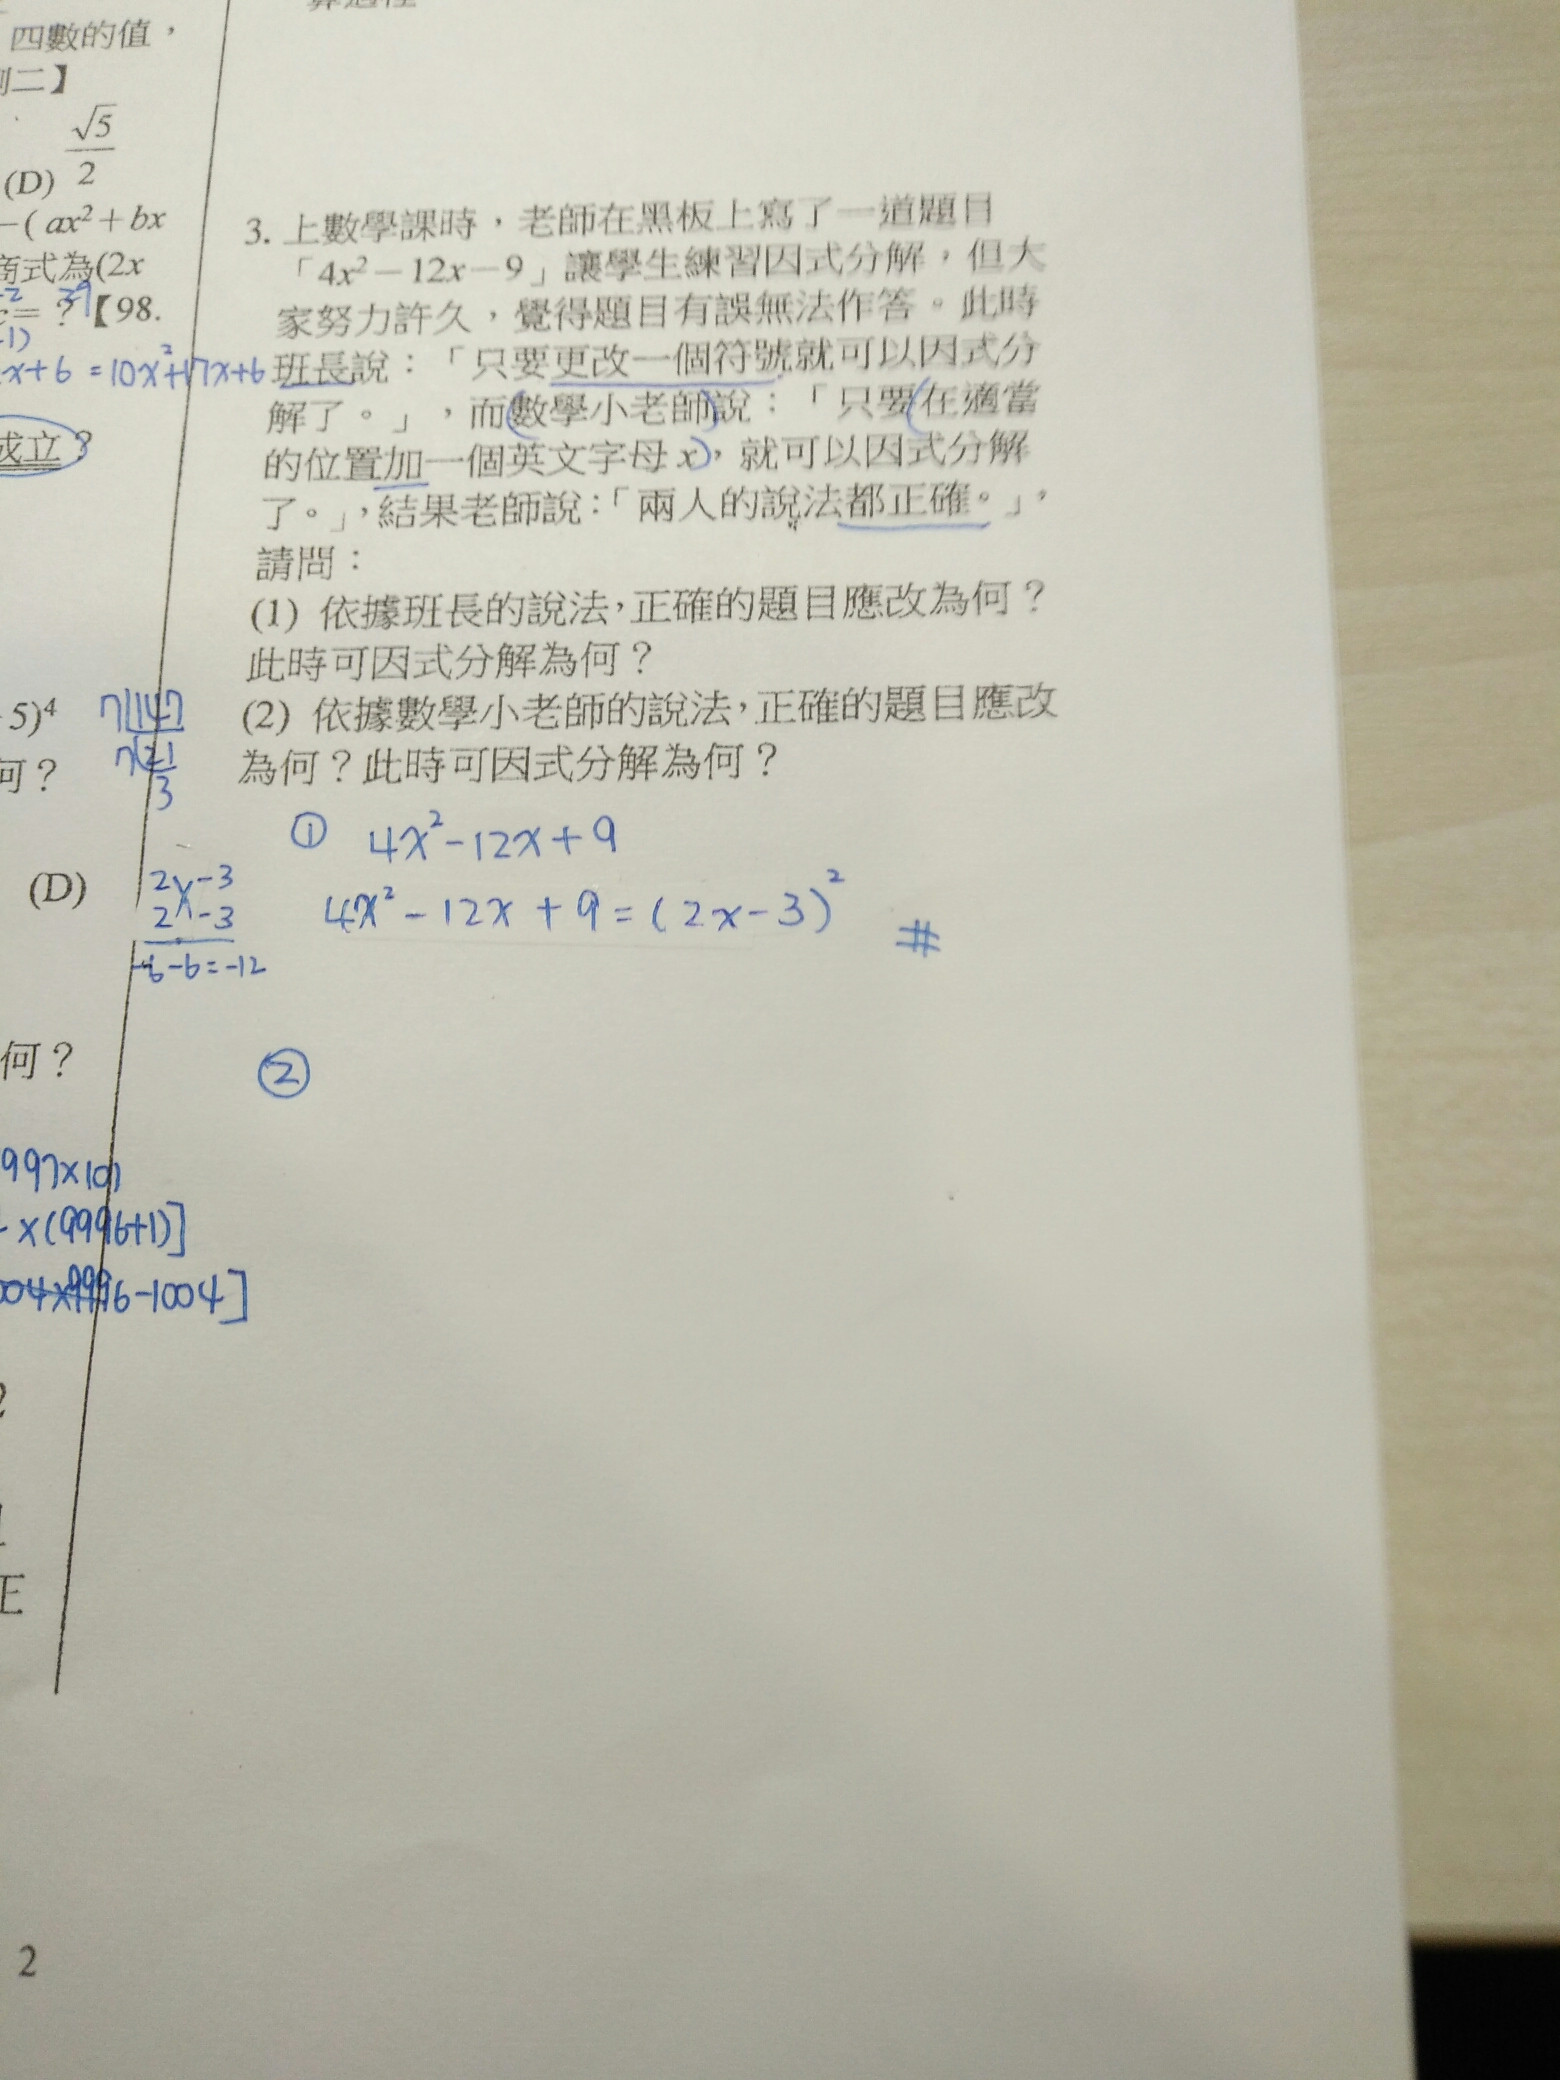 四數的值，
例二】
(D) √5/2
−( ax²+bx
商式為(2x
c=?【98.
x+6 =10x²+17x+6
成立?
5)⁴
何？
7|147
7|21
3
(D)
何？
997×10
x(9996+1)]
004×9996-1004]
2
3. 上數學課時，老師在黑板上寫了一道題目
「4x²−12x−9」讓學生練習因式分解，但大
家努力許久，覺得題目有誤無法作答。此時
班長說：「只要更改一個符號就可以因式分
解了。」，而數學小老師說：「只要在適當
的位置加一個英文字母 x，就可以因式分解
了。」，結果老師說：「兩人的說法都正確。」，
請問：
(1) 依據班長的說法，正確的題目應改為何？
此時可因式分解為何？
(2) 依據數學小老師的說法，正確的題目應改
為何？此時可因式分解為何？
① 4x²-12x+9
2x-3
2x-3
-6-6=-12
4x²-12x+9=(2x-3)² #
②